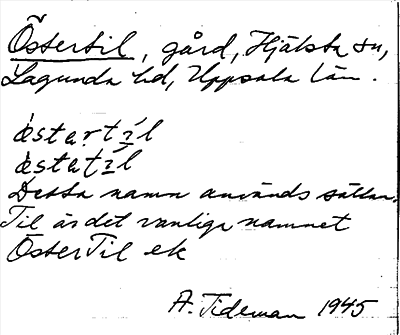 Östertil, gård, Hjälsta sn,
Lagunda hd, Uppsala län.
ǽstaṛtì̱l
ǽstatì̱l
Detta namn används sällan.
Til är det vanliga namnet
ÖsterTil ek
A. Tideman 1945